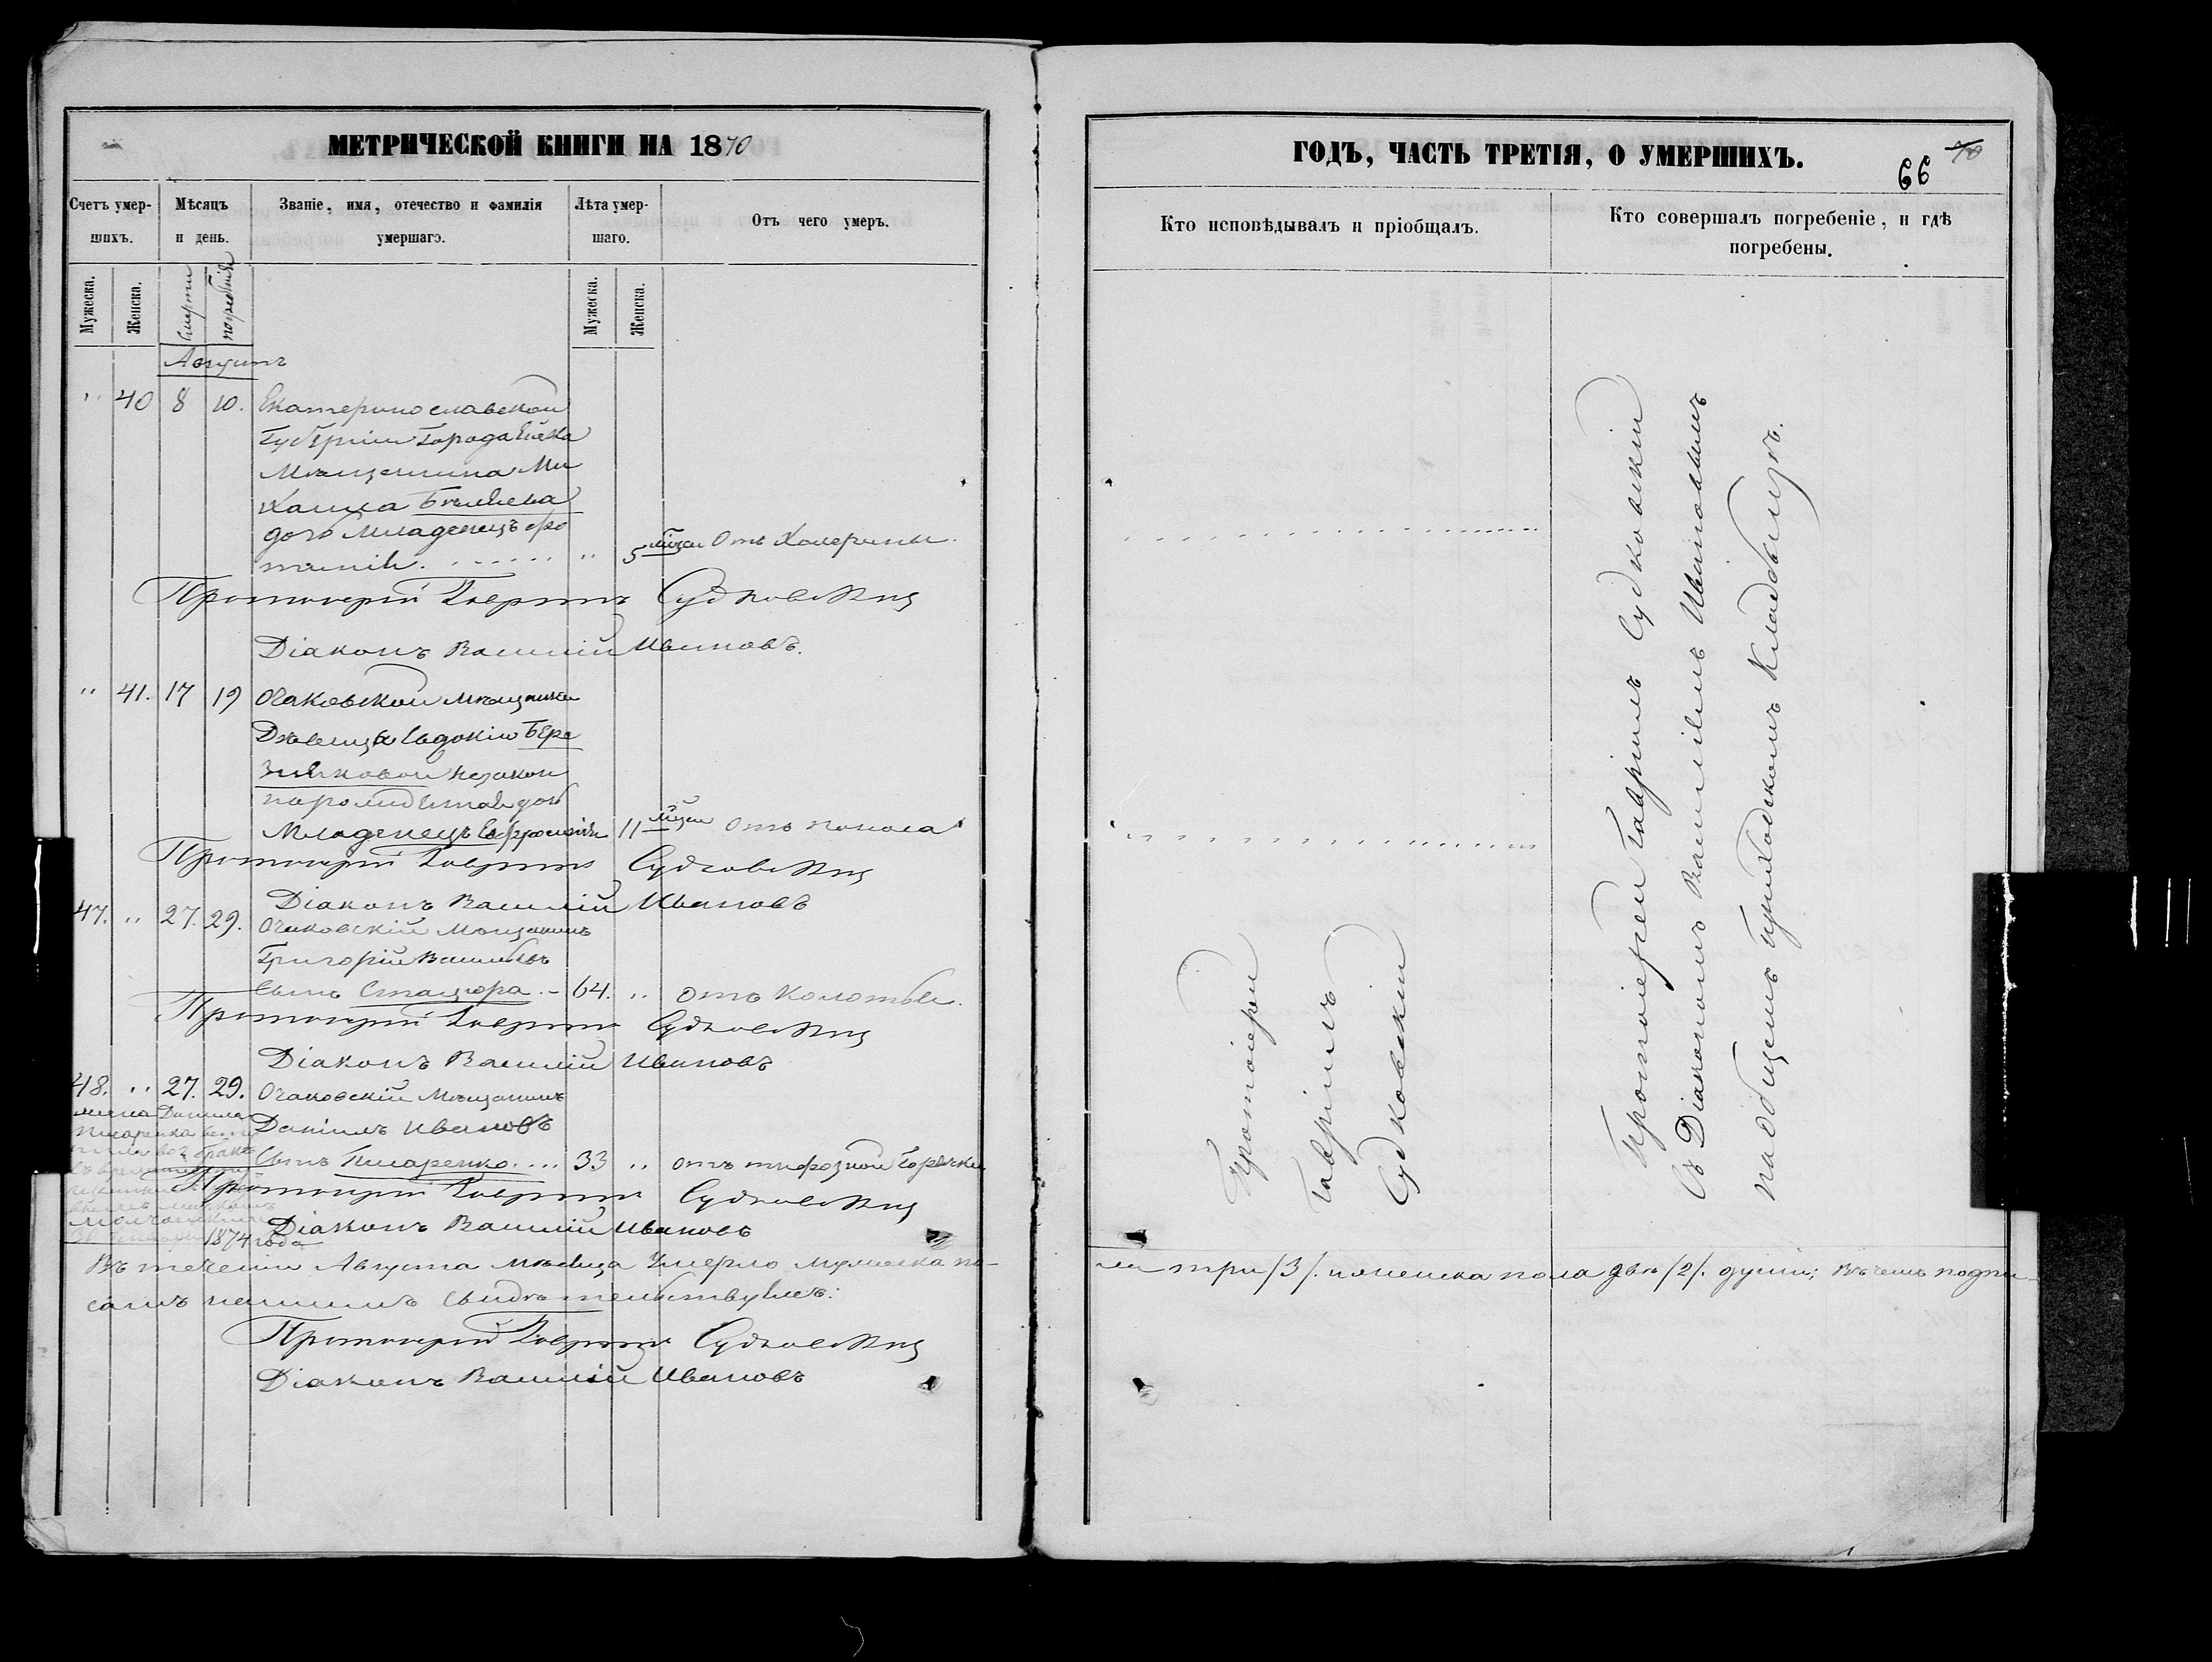 МЕТРИЧЕСКОЙ КНИГИ НА 1870
Счетъ умер-
шихъ.
Мѣсяцъ
и день.
Званіе, имя, отечество и фамилія
умершаго.
Лѣта умер-
шаго.
Отъ чего умеръ.
Мужеска.
Женска.
Смерти
погребенія
Мужеска.
Женска.
Августъ
" 40 8 10. Екатеринославской
Губерніи Города Ейска
Мѣщанина Ми
хаила Бѣляева
дочь Младенецъ
5 мѣсяц Отъ Холерины.
Протоиерей Гавріилъ Судковскій
Діаконъ Василій Ивановъ.
" 41. 17 19 Очаковской мѣщанки
Дѣвицы Евдокіи Бере
зняковой незакон
норожденная дочь
Младенецъ Евфросинія 11 мѣсяц отъ поноса
Протоиерей Гавріилъ Судковскій
Діаконъ Василій Ивановъ
47. " 27. 29. Очаковскій Мѣщанинъ
Григорій Васильевъ
Сынъ Стацюра 64. " отъ Колотья.
Протоиерей Гавріилъ Судковскій
Діаконъ Василій Ивановъ
48. " 27. 29. Очаковскій Мѣщанинъ
Даніилъ Ивановъ
Сынъ Писаренко.... 33 " отъ тифозной Горячки
Протоиерей Гавріилъ Судковскій
Діаконъ Василій Ивановъ
жена Данила
Писаренка
1874 года
Въ теченіи Августа мѣсяца Умерло мужеска по-
самъ нашимъ Свидѣтельствуемъ:
Протоиерей Гавріилъ Судковскій
Діаконъ Василій Ивановъ
ГОДЪ, ЧАСТЬ ТРЕТІЯ, О УМЕРШИХЪ.
66 70
Кто исповѣдывалъ и пріобщалъ.
Кто совершалъ погребеніе, и гдѣ
погребены.
Протоіерей
Гавріилъ
Судковскій
Протоіерей Гавріилъ Судковскій
съ Діакономъ Василіемъ Ивановымъ
на общемъ приходскомъ Кладбищѣ.
ла три /3/. и женска пола двѣ /2/. души; въ чемъ подпи-